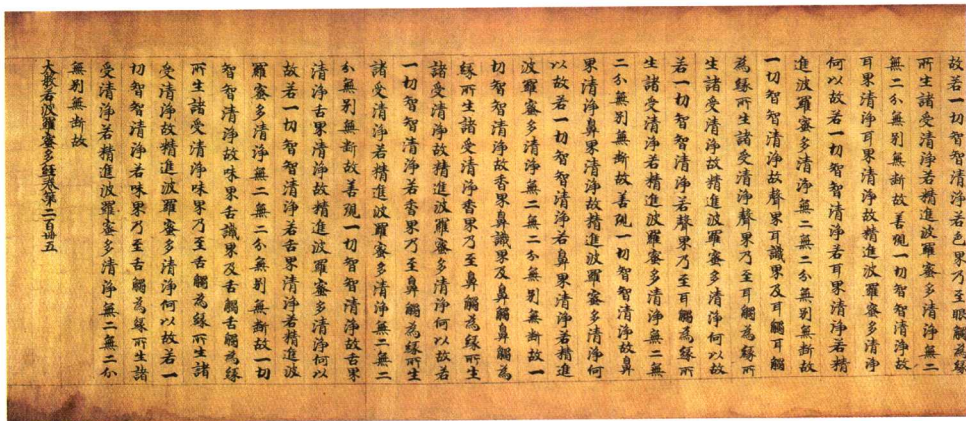 故若一切智智清淨若色界乃至眼觸為緣
所生諸受清淨若精進波羅蜜多清淨無二
無二分無別無斷故善現一切智智清淨故
耳界清淨耳界清淨故精進波羅蜜多清淨
何以故若一切智智清淨若耳界清淨若精
進波羅蜜多清淨無二無二分無別無斷故
一切智智清淨故聲界耳識界及耳觸耳觸
為緣所生諸受清淨聲界乃至耳觸為緣所
生諸受清淨故精進波羅蜜多清淨何以故
若一切智智清淨若聲界乃至耳觸為緣所
生諸受清淨若精進波羅蜜多清淨無二無
二分無別無斷故善現一切智智清淨故鼻
界清淨鼻界清淨故精進波羅蜜多清淨何
以故若一切智智清淨若鼻界清淨若精進
波羅蜜多清淨無二無二分無別無斷故一
切智智清淨故香界鼻識界及鼻觸鼻觸為
緣所生諸受清淨香界乃至鼻觸為緣所生
諸受清淨故精進波羅蜜多清淨何以故若
一切智智清淨若香界乃至鼻觸為緣所生
諸受清淨若精進波羅蜜多清淨無二無二
分無別無斷故善現一切智智清淨故舌界
清淨舌界清淨故精進波羅蜜多清淨何以
故若一切智智清淨若舌界清淨若精進波
羅蜜多清淨無二無二分無別無斷故一切
智智清淨故味界舌識界及舌觸舌觸為緣
所生諸受清淨味界乃至舌觸為緣所生諸
受清淨故精進波羅蜜多清淨何以故若一
切智智清淨若味界乃至舌觸為緣所生諸
受清淨若精進波羅蜜多清淨無二無二分
無別無斷故
大般若波羅蜜多經卷第二百卌五